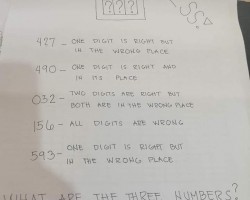 ???
427 - ONE DIGIT IS RIGHT BUT
IN THE WRONG PLACE
490 - ONE DIGIT IS RIGHT AND
IN ITS PLACE
032 - TWO DIGITS ARE RIGHT BUT
BOTH ARE IN THE WRONG PLACE
156 - ALL DIGITS ARE WRONG
593 - ONE DIGIT IS RIGHT BUT
IN THE WRONG PLACE
WHAT ARE THE THREE NUMBERS?